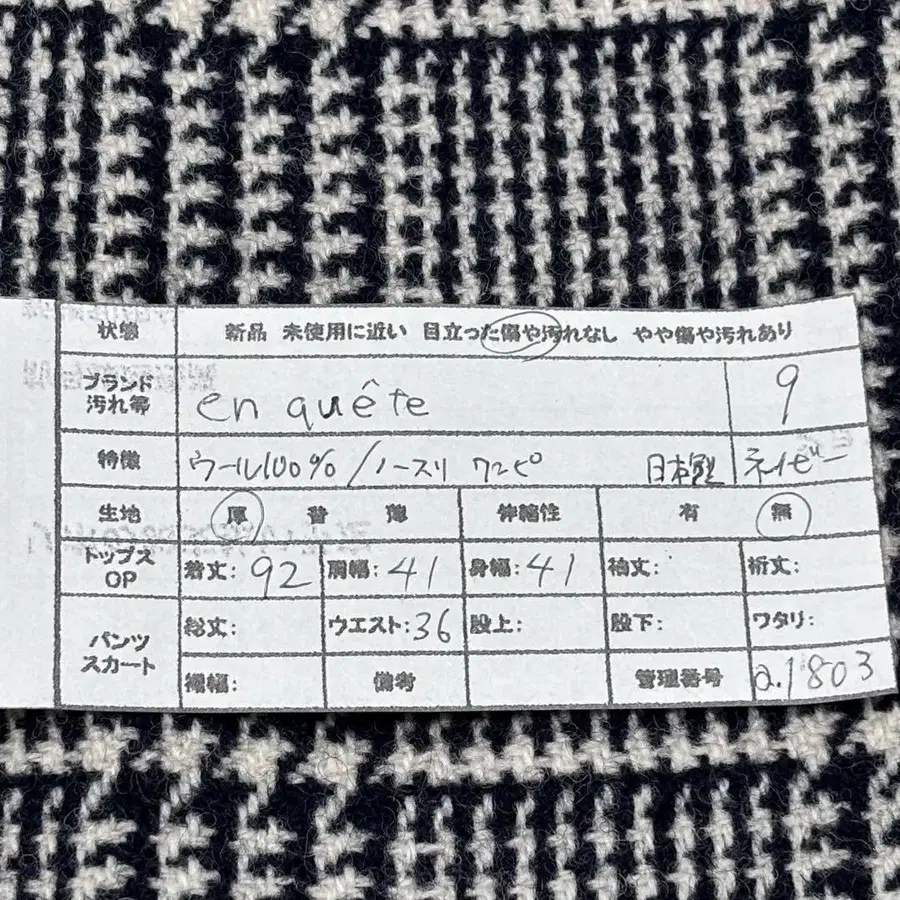 状態 新品 未使用に近い 目立った傷や汚れなし やや傷や汚れあり
ブランド 汚れ等 en quête 9
特徴 ウール100%/ノースリ ワンピ 日本製 ネイビー
生地 厚 普 薄 伸縮性 有 無
トップス OP 着丈:92 肩幅:41 身幅:41 袖丈: 裄丈:
パンツ スカート 総丈: ウエスト:36 股上: 股下: ワタリ:
裾幅: 備考 管理番号 a.1803